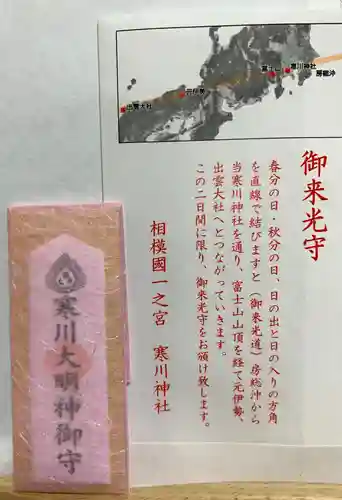 出雲大社
元伊勢
富士山
寒川神社
房総沖
御来光守
春分の日・秋分の日、日の出と日の入りの方角
を直線で結びますと(御来光道)房総沖から
当寒川神社を通り、富士山山頂を経て元伊勢、
出雲大社へとつながっていきます。
この二日間に限り、御来光守をお頒け致します。
相模國一之宮 寒川神社
寒川大明神御守